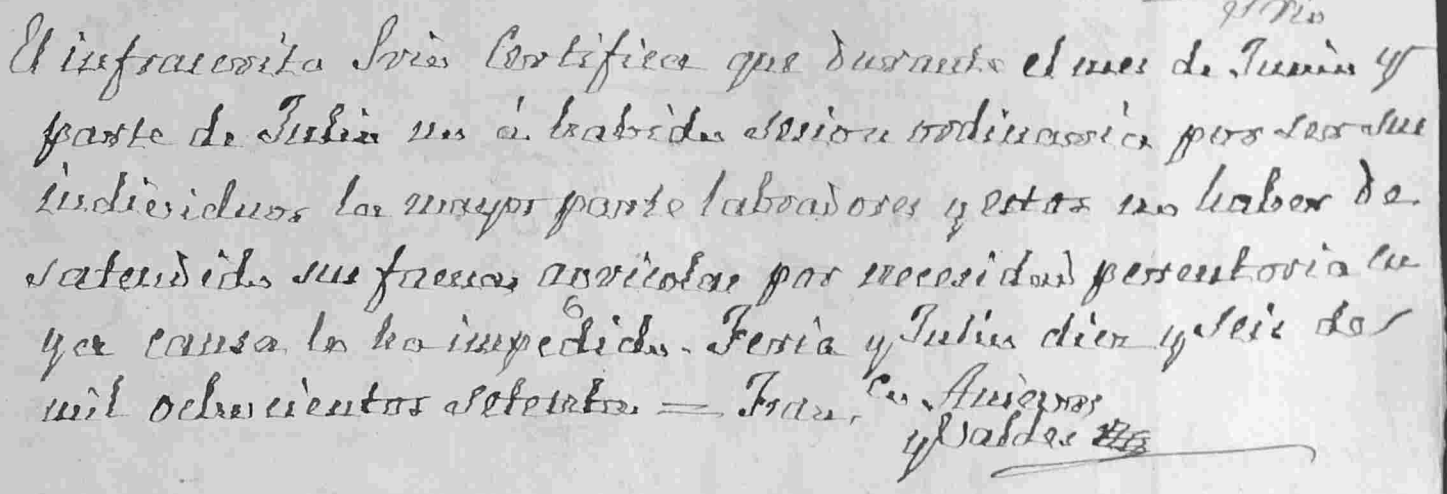 El infraescrito Srio Certifica que durante el mes de Junio y
parte de Julio no á habido sesion ordinaria por ser sus
individuos la mayor parte labradores y estos no haber de
satendido sus faenas agricolas por necesidad perentoria cu
ya causa lo ha impedido. Feria y Julio diez y seis de
mil ochocientos setenta = Fran.co
y Valdes